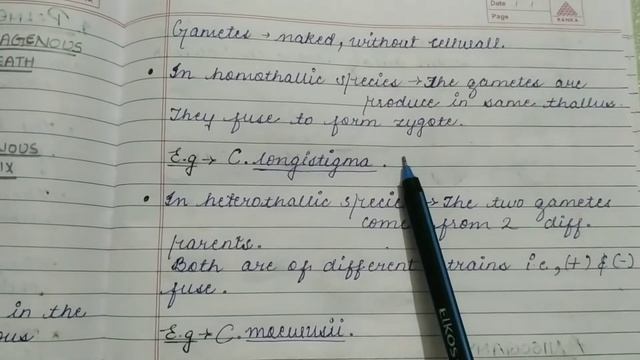 Date
Page
KANKA
Gametes → naked, without cellwall.
AGENOUS
EATH
• In homothallic species → The gametes are
produce in same thallus.
They fuse to form zygote.
E.g → C. longistigma.
NOUS
IX
• In heterothallic species → The two gametes
come from 2 diff.
parents.
Both are of different strains i.e., (+) & (-)
fuse.
in the
ous
E.g → C. moewusii.